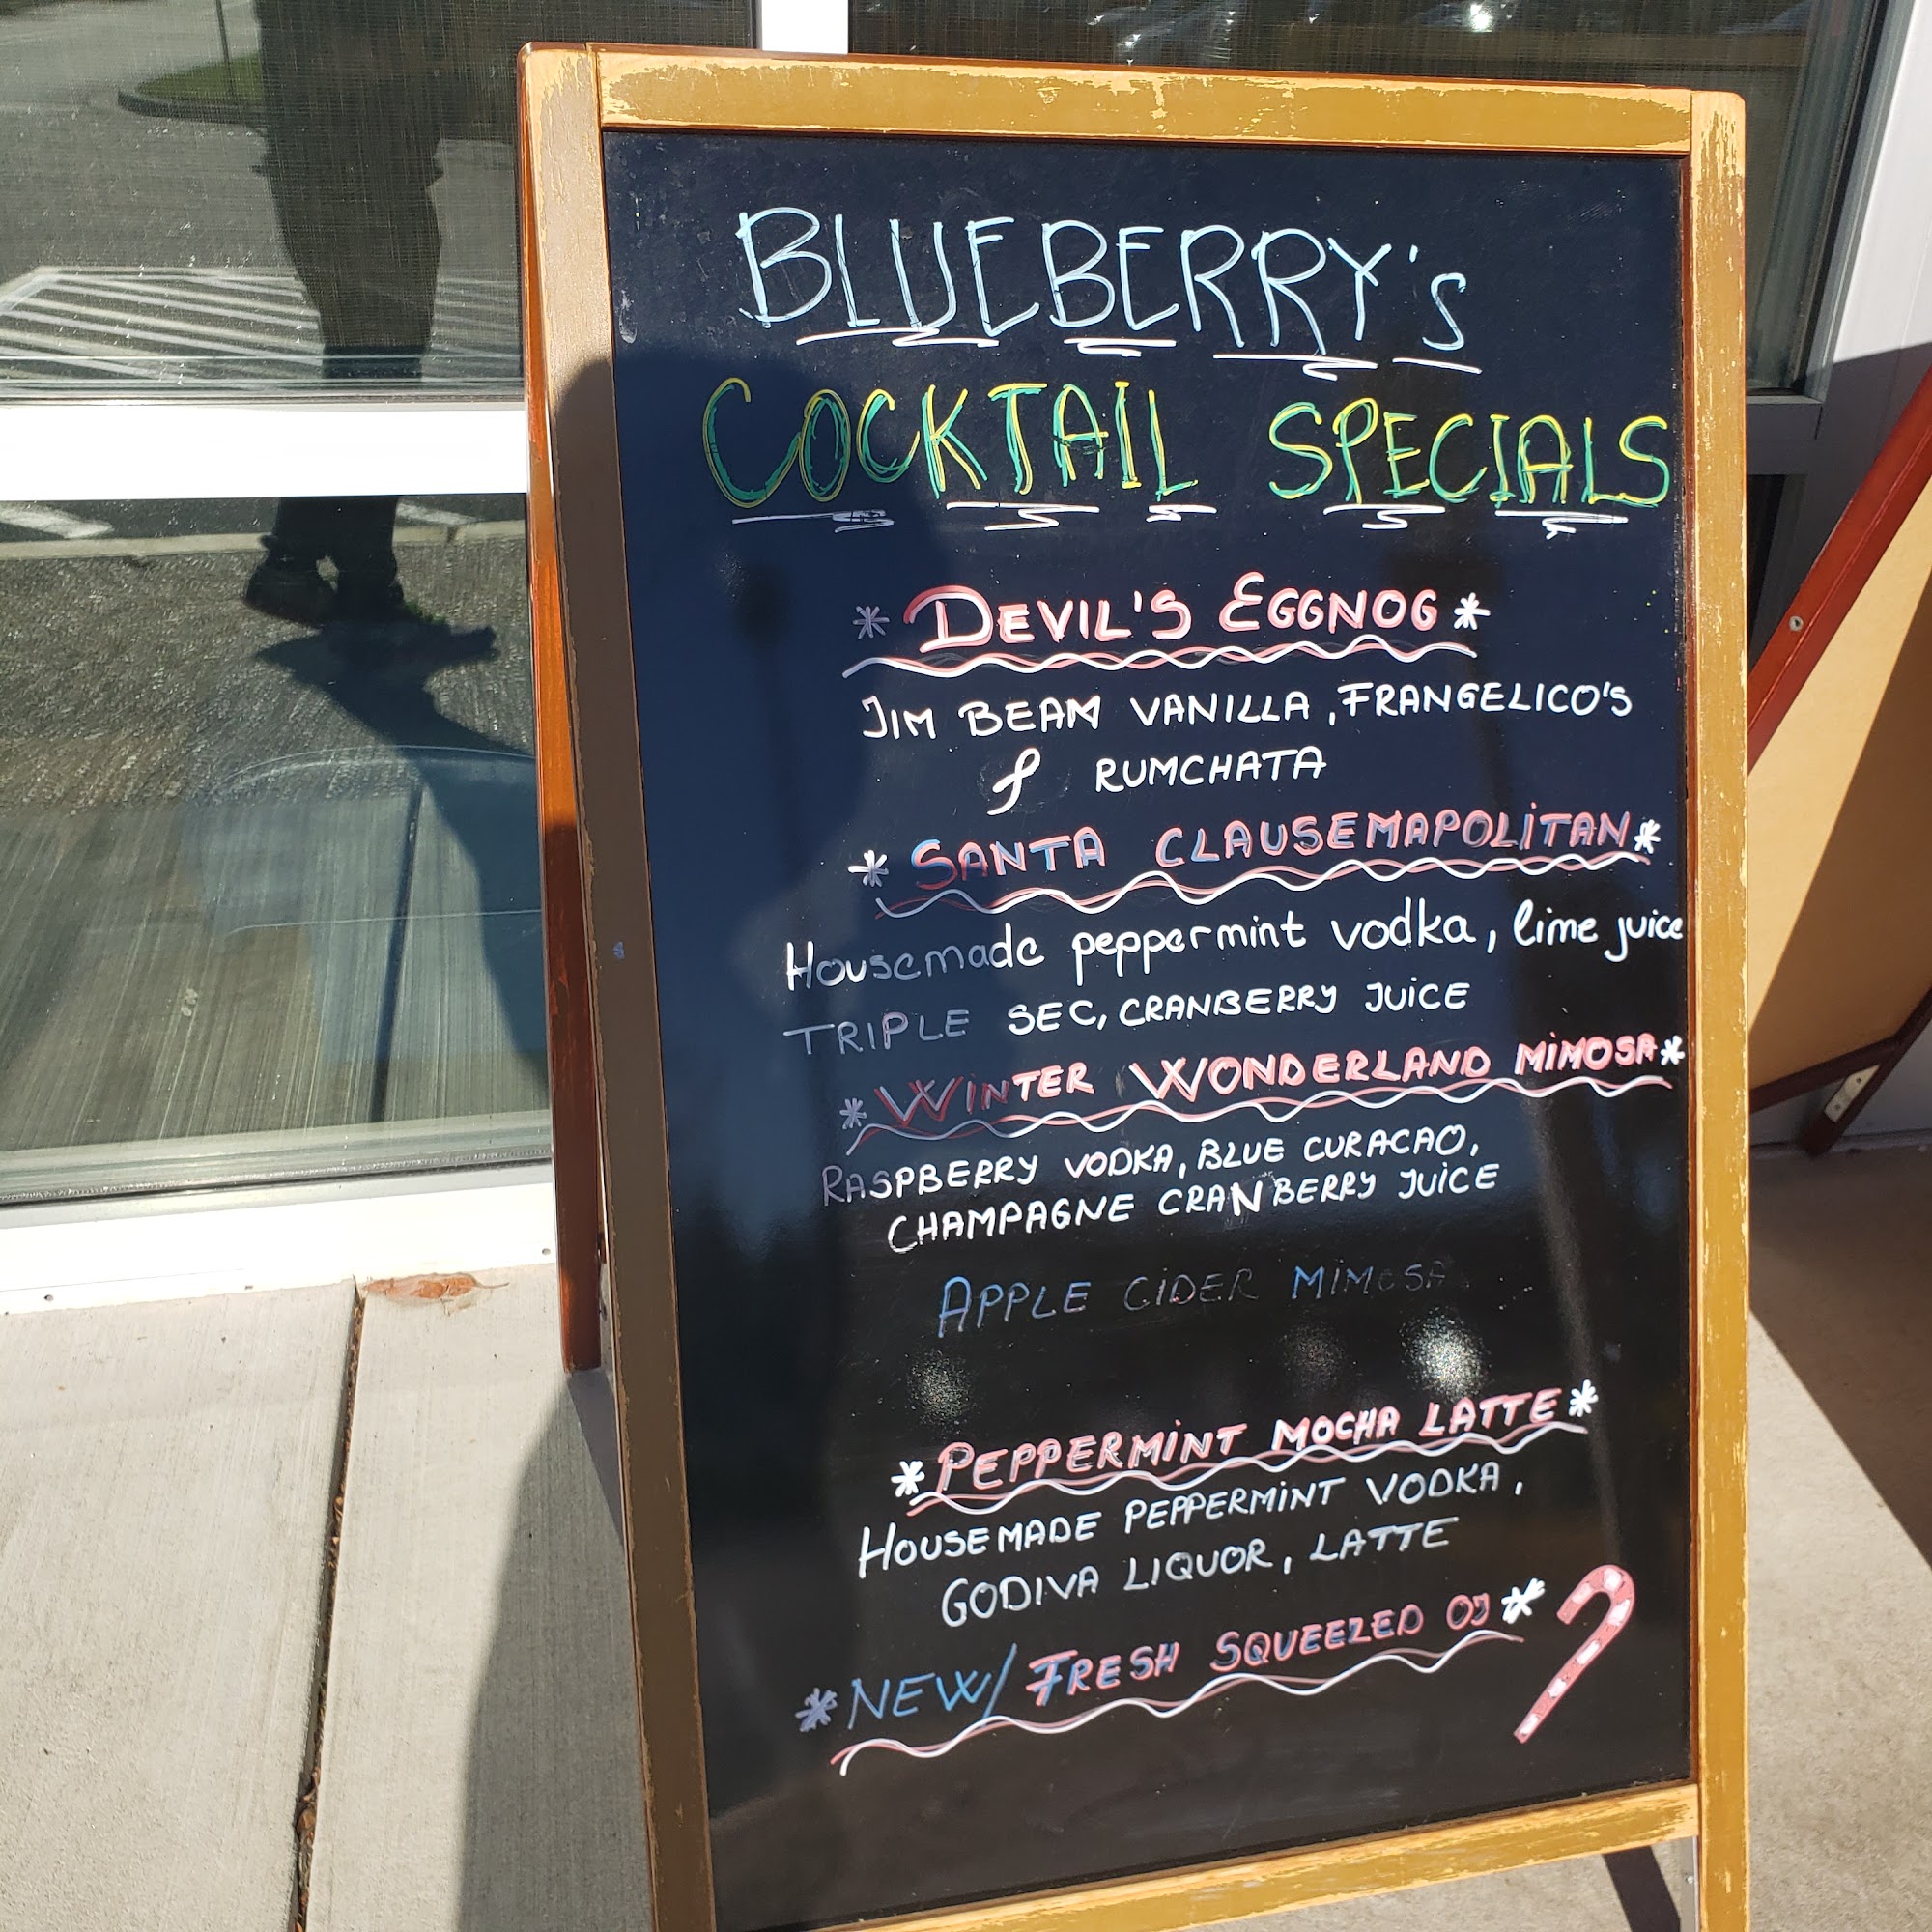 BLUEBERRY's
COCKTAIL SPECIALS
* DEVIL'S EGGNOG *
JIM BEAM VANILLA, FRANGELICO'S
& RUMCHATA
* SANTA CLAUSEMAPOLITAN *
Housemade peppermint vodka, lime juice
TRIPLE SEC, CRANBERRY JUICE
* WINTER WONDERLAND MIMOSA *
RASPBERRY VODKA, BLUE CURACAO,
CHAMPAGNE CRANBERRY JUICE
APPLE CIDER MIMOSA
* PEPPERMINT MOCHA LATTE *
HOUSEMADE PEPPERMINT VODKA,
GODIVA LIQUOR, LATTE
* NEW/ FRESH SQUEEZED OJ *